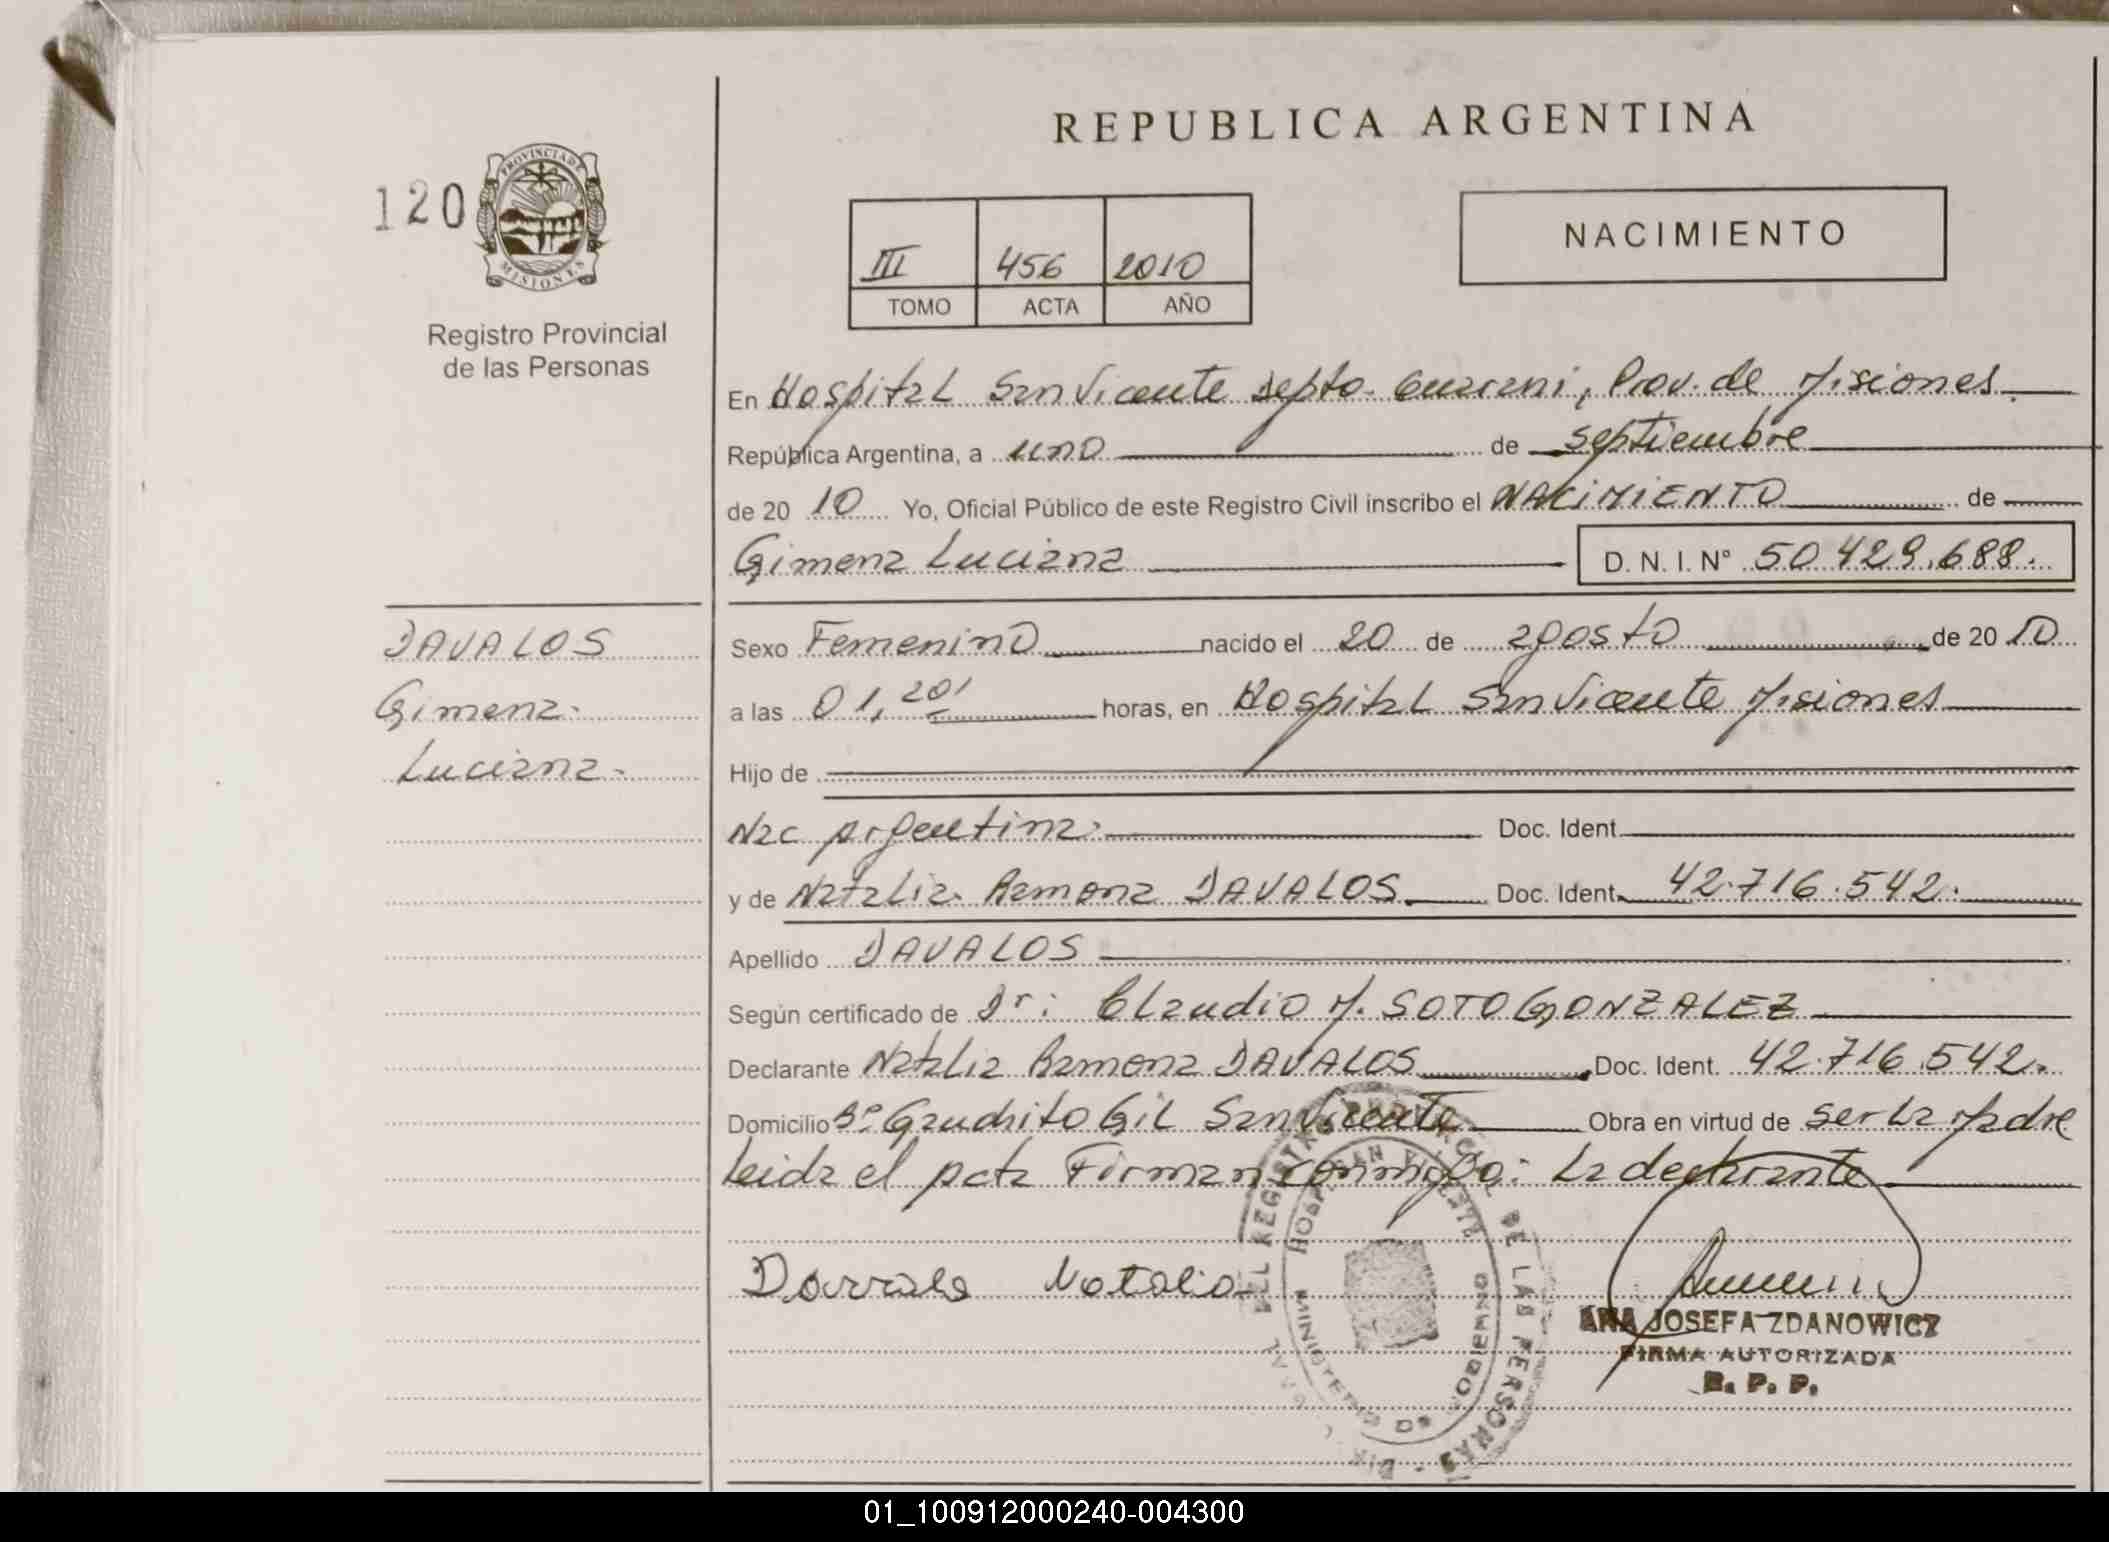 REPUBLICA ARGENTINA
120
PROVINCIA DE
MISIONES
Registro Provincial
de las Personas
III 456 2010
TOMO ACTA AÑO
NACIMIENTO
En Hospital San Vicente Depto. Guarani, Prov. de Misiones
República Argentina, a uno de septiembre
de 20 10 Yo, Oficial Público de este Registro Civil inscribo el NACIMIENTO de
Gimena Luciana D. N. I. N° 50.429.688.
DAVALOS
Gimena.
Luciana.
Sexo Femenino nacido el 20 de agosto de 20 10
a las 01,20' horas, en Hospital San Vicente Misiones
Hijo de
Nac Argentina. Doc. Ident.
y de Natalia Ramona DAVALOS. Doc. Ident. 42.716.542.
Apellido DAVALOS
Según certificado de Dr: Claudio M. SOTO GONZALEZ
Declarante Natalia Ramona DAVALOS Doc. Ident. 42.716.542.
Domicilio Bº Gauchito Gil San Vicente Obra en virtud de ser la Madre
Leida el acta Firman conmigo: La declarante
Natalia
REGISTRO PROVINCIAL DE LAS PERSONAS
HOSP. SAN VICENTE
MINISTERIO DE GOBIERNO
ANA JOSEFA ZDANOWICZ
FIRMA AUTORIZADA
R. P. P.
01_100912000240-004300